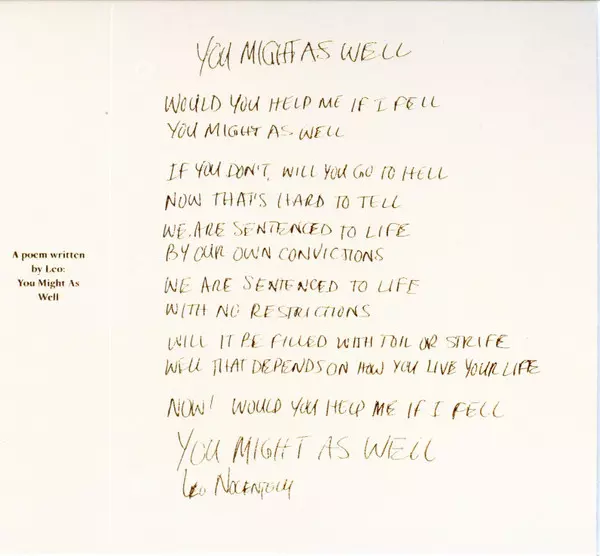 YOU MIGHT AS WELL
WOULD YOU HELP ME IF I FELL
YOU MIGHT AS WELL
IF YOU DON'T, WILL YOU GO TO HELL
NOW THAT'S HARD TO TELL
WE ARE SENTENCED TO LIFE
BY OUR OWN CONVICTIONS
WE ARE SENTENCED TO LIFE
WITH NO RESTRICTIONS
WILL IT BE FILLED WITH TOIL OR STRIFE
WELL THAT DEPENDS ON HOW YOU LIVE YOUR LIFE
NOW! WOULD YOU HELP ME IF I FELL
YOU MIGHT AS WELL
Leo Nocentelli
A poem written
by Leo:
You Might As
Well